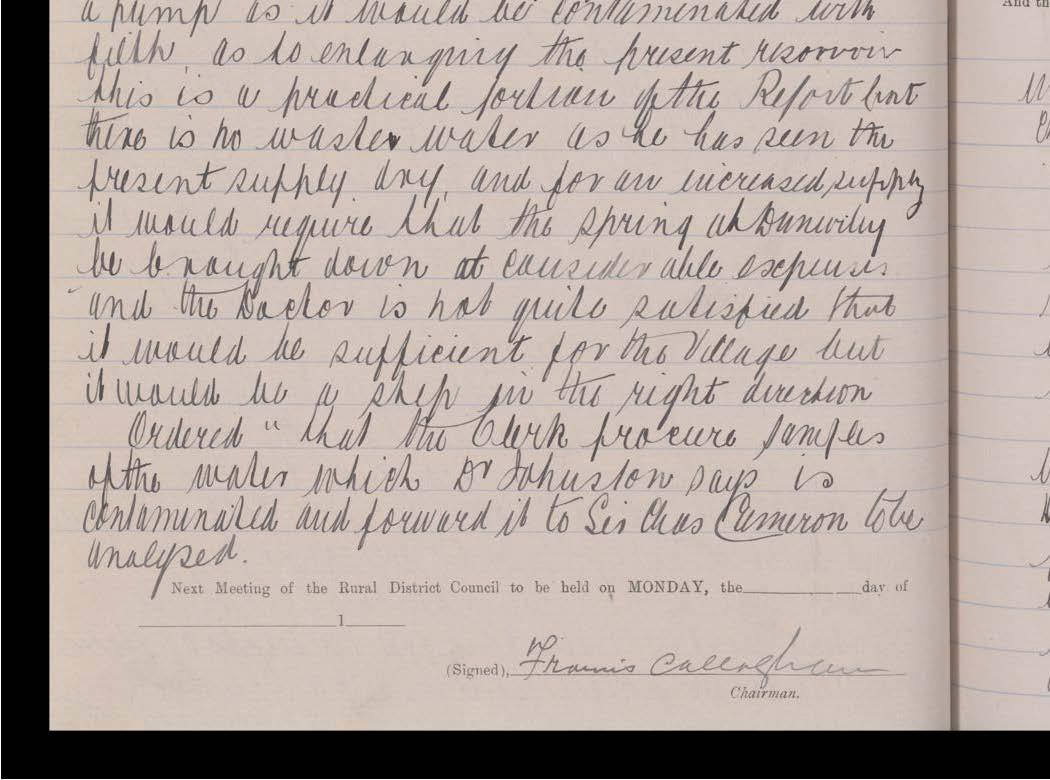 a pump as it would be contaminated with
filth, as to enlarging the present resorvoir
this is a practical portion of the Report but
there is no waster water as he has seen the
present supply dry, and for an increased supply
it would require that the spring at
be brought down at considerable expenses
and the Doctor is not quite satisfied that
it would be sufficient for the Village but
it would be a step in the right direction
Ordered "that the Clerk procure samples
of the water which Dr Johnston says is
contaminated and forward it to Sir Chas Cameron to be
analysed.
Next Meeting of the Rural District Council to be held on MONDAY, the____________day of
____________1______
(Signed), Francis Callaghan
Chairman.
And th